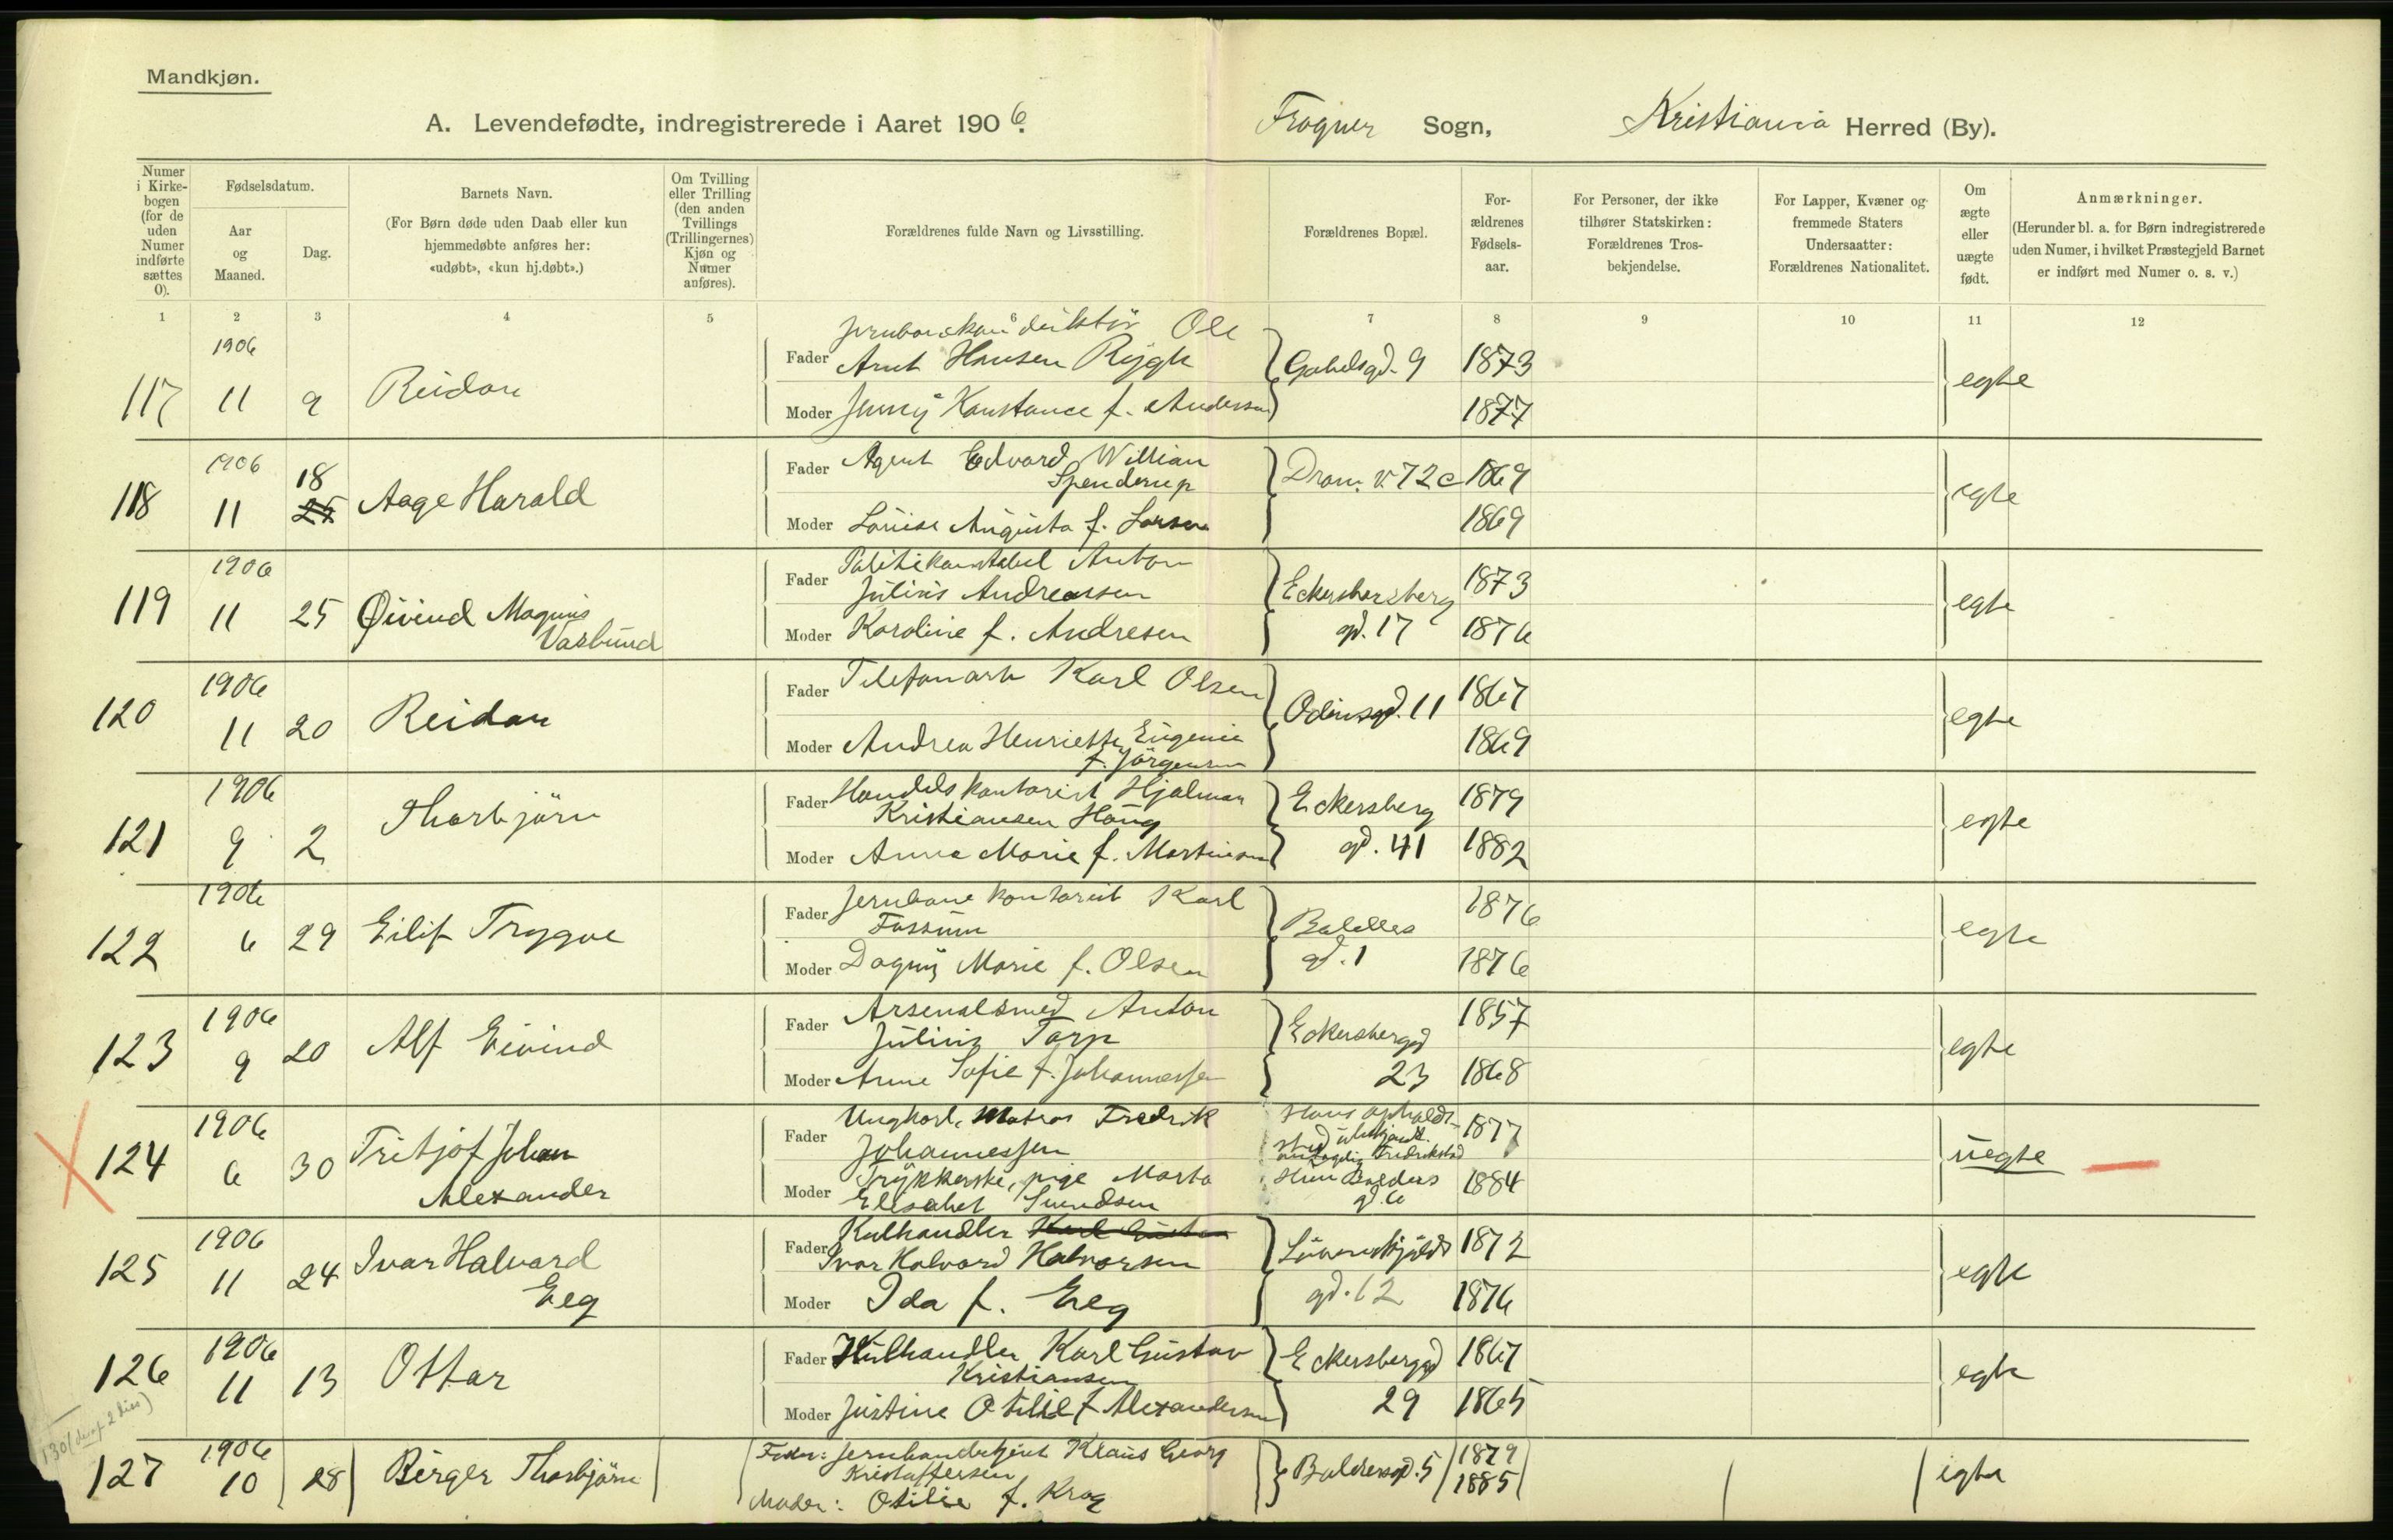 Mandkjøn.
A. Levendefødte, indregistrerede i Aaret 1906. Frogner Sogn, Kristiania Herred (By).
Numer i Kirkebogen (for de uden Numer indførte sættes 0).
Fødselsdatum.
Aar og Maaned.
Dag.
Barnets Navn.
(For Børn døde uden Daab eller kun hjemmedøbte anføres her: «udøbt», «kun hj.døbt».)
Om Tvilling eller Trilling (den anden Tvillings (Trillingernes) Kjøn og Numer anføres).
Forældrenes fulde Navn og Livsstilling.
Forældrenes Bopæl.
Forældrenes Fødselsaar.
For Personer, der ikke tilhører Statskirken: Forældrenes Trosbekjendelse.
For Lapper, Kvæner og fremmede Staters Undersaatter: Forældrenes Nationalitet.
Om ægte eller uægte født.
Anmærkninger.
(Herunder bl. a. for Børn indregistrerede uden Numer, i hvilket Præstegjeld Barnet er indført med Numer o. s. v.)
1 2 3 4 5 6 7 8 9 10 11 12
117 1906 11 9 Reidar
Fader Ole
Arnt Hansen Rygh Gabelsgd. 9 1873 egte
Moder Jenny Konstance f. Andersen 1877
118 1906 11 18 25 Aage Harald
Fader Agent Edvard William
Spenderup Dram. v 72 c 1869 egte
Moder Louise Augusta f. Larsen 1869
119 1906 11 25 Øivind Magnus
Vasbund
Fader Politikonstabel Anton
Julius Andreassen Eckersbersberg 1873 egte
Moder Karoline f. Andresen gd. 17 1876
120 1906 11 20 Reidar
Fader Telefonarb Karl Olsen Odinsgd. 11 1867 egte
Moder Andrea Henriette Eugenie
f. Jörgensen 1869
121 1906 9 2 Thorbjörn
Fader Handelskontorist Hjalmar
Kristiansen Haug Eckersberg 1879 egte
Moder Anna Marie f. Martinsen gd. 41 1882
122 1906 6 29 Eilif Trygve
Fader Jernbanekontorist Karl
Fossum 1876 egte
Moder Dagny Marie f. Olsen gd. 1 1876
123 1906 9 20 Alf Eivind
Fader Arsenalsmed Anton
Julius Torp Eckersbergd 1857 egte
Moder Anne Sofie f. Johannessen 23 1868
124 1906 6 30 Fritjof Johan
Alexander
Fader Ungkarl, Matros Fredrik
Johannessen Hans opholds-
sted ubekjendt.
antagelig Fredrikstad 1877 uegte
Moder Trykkerske, pige Marta
Elisabet Svendsen Hun Balders
gd. 6 1884
125 1906 11 24 Ivar Halvard
Eeg
Fader Kulhandler
Ivar Halvard Halvorsen Lövenskjolds 1872 egte
Moder Ida f. Eeg gd. 12 1876
126 1906 11 13 Ottar
Fader Kulhandler Karl Gustav
Kristiansen Eckersbergd 1867 egte
Moder Justine Otilie f Alexandersen 29 1865
130 (deraf 2 )
127 1906 10 28 Birger Thorbjörn
Fader: Klaus Georg
Kristoffersen Baldersgd. 5 1879 egte
Moder: Otilie f. Krog 1885